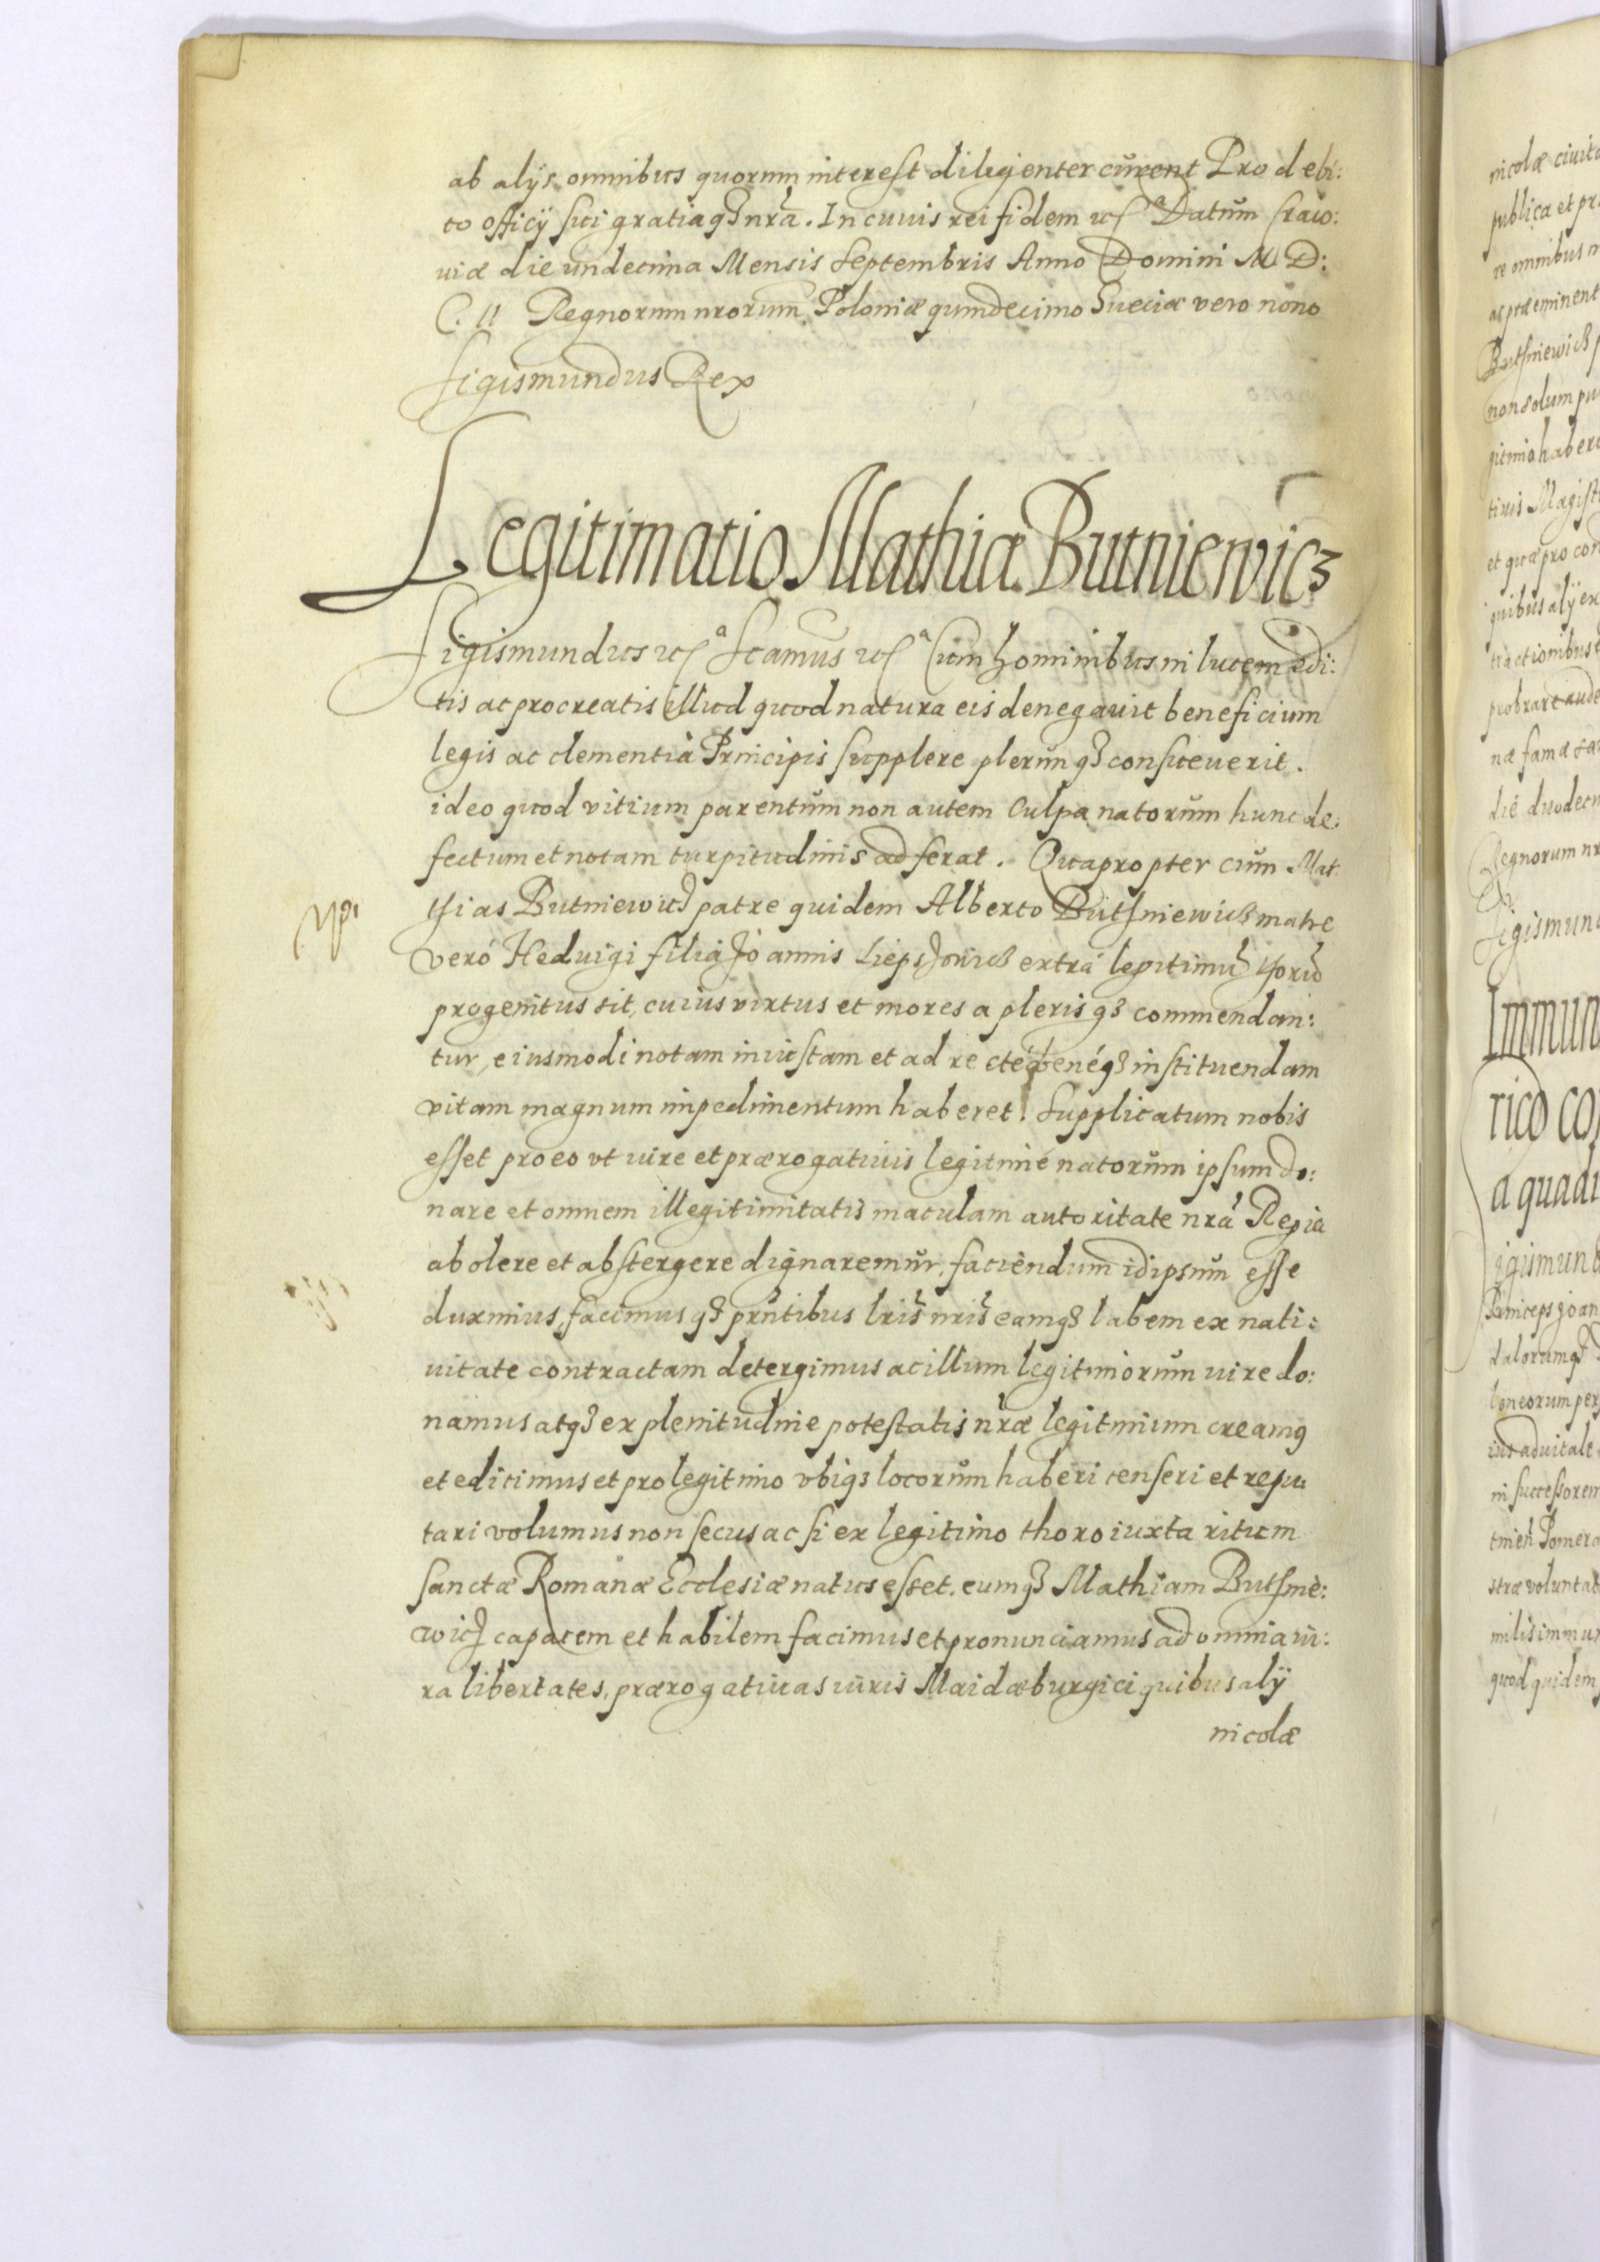 ab alijs omnibus quorum interest diligenter curent Pro debi:
to officij sui gratiaq3 nra. In cuius rei fidem etc Datum Craco:
uiæ die undecima Mensis Septembris Anno Domini M D:
C. II Regnorum nrorum Poloniæ quindecimo Sueciæ vero nono
Sigismundus Rex
Legitimatio Mathiæ Butniewicz
Sigismundus etc Scamus etc Cum hominibus in lucem edi:
tis ac procreatis illud quod natura eis denegauit beneficium
legis ac clementia Principis supplere plerunq3 consueuerit.
ideo quod vitium parentum non autem culpa natorum hunc de:
fectum et notam turpitudinis adferat. Quapropter cum Mat
thias Butniewicz patre quidem Alberto Butsniewicz matre
veró Heduigi filia Joannis extrá legitimū thorū
progenitus sit, cuius virtus et mores a plerisq3 commendan:
tur, eiusmodi notam iniustam et ad recté benéq3 instituendam
vitam magnum impedimentum haberet. Supplicatum nobis
esset pro eo vt iure et prærogatiuis legitimé natorum ipsum do:
nare et omnem illegitimitatis maculam autoritate nrá Regia
abolere et abstergere dignaremur, faciendum idipsum esse
duximus, facimusq3 pntibus lris nris eamq3 labem ex nati:
uitate contractam detergimus ac illum legitimorum iure do:
namus atq3 ex plenitudine potestatis nræ legitimum creamq
et edicimus et pro legitimo vbiq3 locorum haberi censeri et repu
tari volumus non secus ac si ex legitimo thoro iuxta ritum
sanctæ Romanæ Ecclesiæ natus esset. eumq3 Mathiam Butsnie:
wicz capacem et habilem facimus et pronunciamus ad omnia iu:
ra libertates, prærogatiuas iuris Maidæburgici quibus alij
nicolæ
nicolæ ciuita
publica et pr
re omnibus
ac præeminent
Butsniewicz
non solum pu
gitimo habere
tiuis Magist
et quæ pro con
quibus alij ex
tractionibus
probrare aude
næ famæ
die duodeci
Regnorum nr
Sigismund
Immun
rico co
a quadr
igismund
Princeps joan
dalorumq3
loneorum per
ius aduitale
in successorem
Pomera
stræ voluntat
milis immun
quod quidem